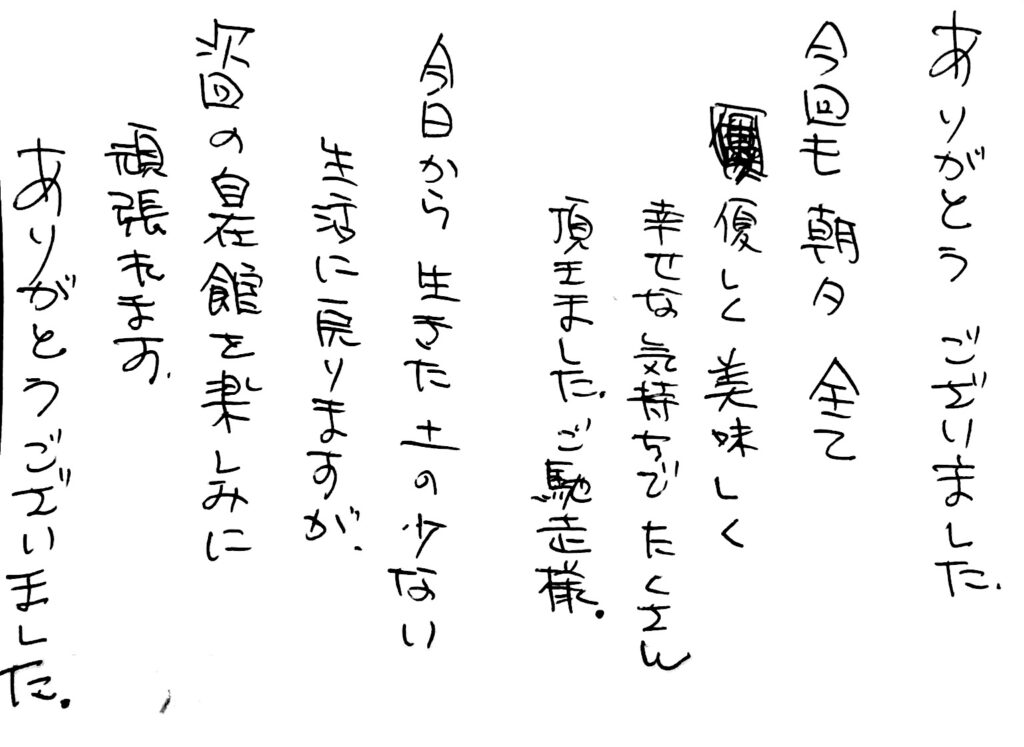 ありがとうございました.
今回も朝夕全て
優しく美味しく
幸せな気持ちでたくさん
頂きました.ご馳走様.
今日から生きた土の少ない
生活に戻りますが.
次回の自在館を楽しみに
頑張れます.
ありがとうございました.